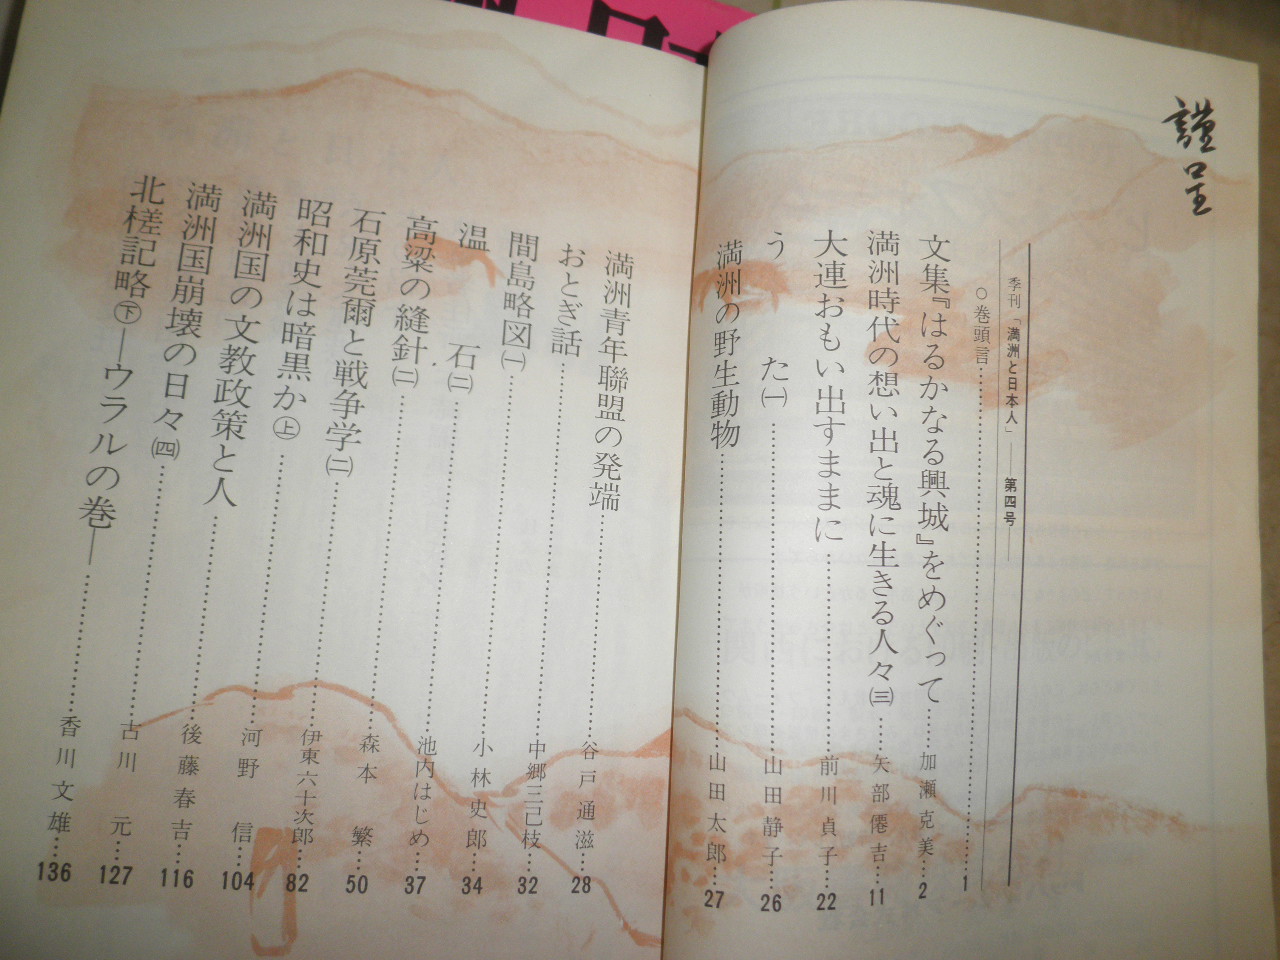 謹呈
季刊「満洲と日本人」——第四号——
○巻頭言……1
文集『はるかなる興城』をめぐって……加瀬克美…2
満洲時代の想い出と魂に生きる人々㈢……矢部僊吉…11
大連おもい出すままに……前川貞子…22
うた㈠……山田静子…26
満洲の野生動物……山田太郎…27
満洲青年聯盟の発端……谷戸通滋…28
おとぎ話……中郷三己枝…32
間島略図㈠……小林史郎…34
温石㈡……池内はじめ…37
高粱の縫針㈡……森本繁…50
石原莞爾と戦争学㈡……伊東六十次郎…82
昭和史は暗黒か㊤……河野信…104
満洲国の文教政策と人……後藤春吉…116
満洲国崩壊の日々㈣……古川元…127
北槎記略㊦—ウラルの巻—……香川文雄…136